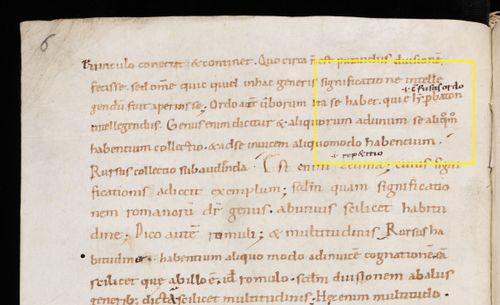 6
uinculo conectit & continet. Quo circa n̄ est putandus diuisionē
fecisse. sed om̄e quic quid in hac generis significatione intelle
+ cōfusus ordo
gendū fuit aperuisse; Ordo autē uerborum ita se habet. qui e
intellegendus. Genus enim dicitur & aliquorum ad unum. se aliqm̄
habentium collectio. & ad se inuicem aliquomodo habentium.
+ repetitio
Rursus collectio sub audienda. Est enim
ficationis adiecit exemplum; scdm̄ quam significatio
nem romanorū dr̄ genus. ab unius scilicet habitu
dine; Dico autē romuli; & multitudinis Rursus ha
bitudinē habentium aliquo modo ad inuicē cognationē
scilicet que ab illo ē. id romulo. scdm̄ diuisionem ab aliis
generib; dicta scilicet multitudinis; Hec enim multitudo